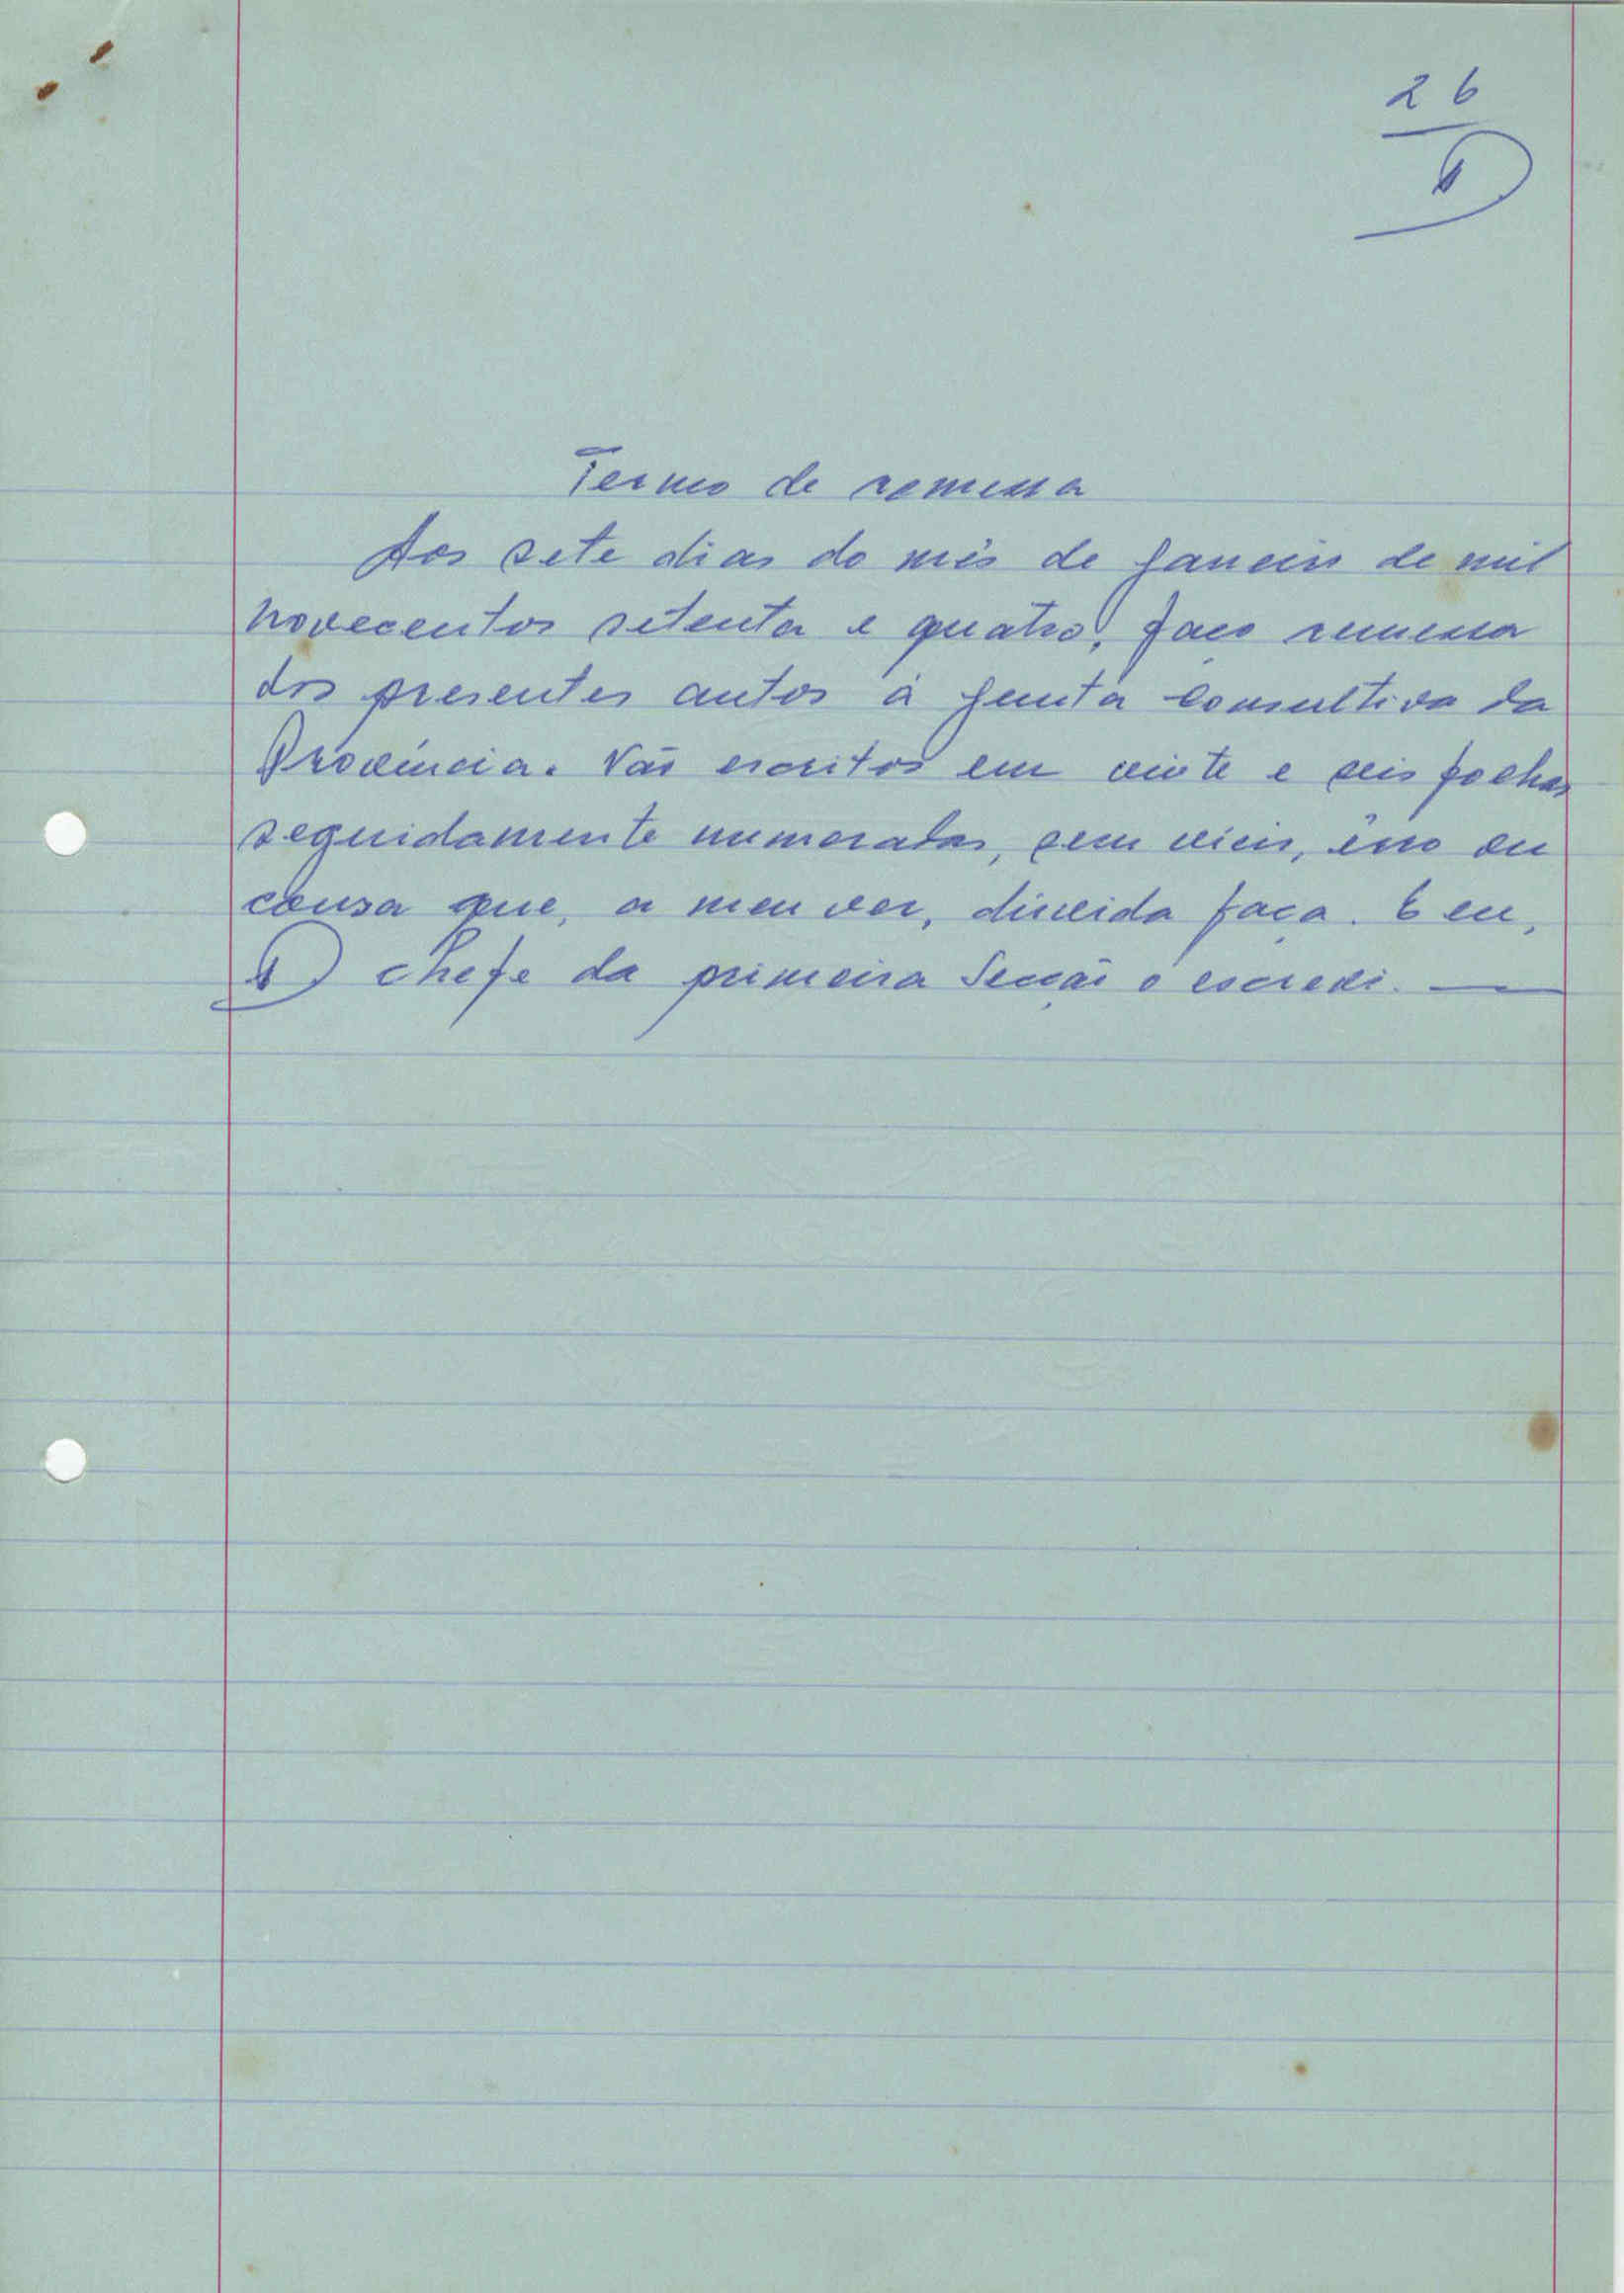 26
Termo de remessa
Aos sete dias do mês de Janeiro de mil
novecentos setenta e quatro, faço remessa
dos presentes autos à Junta Consultiva da
Província. Vão escritos em vinte e seis folhas
seguidamente numeradas, sem vício, êrro ou
cousa que, a meu ver, dúvida faça. E eu,
chefe da primeira Secção o escrevi.